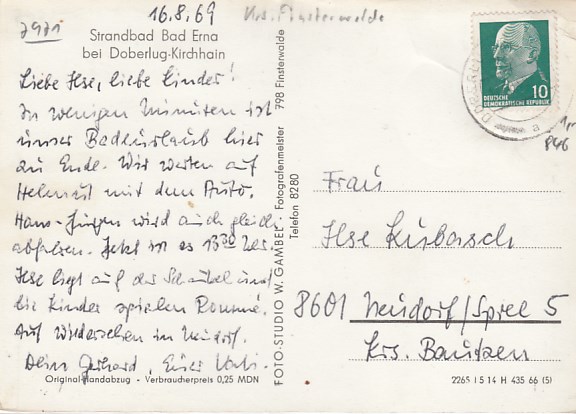 7971
16.8.69
Krs. Finsterwalde
Strandbad Bad Erna
bei Doberlug-Kirchhain
Liebe Ilse, liebe Kinder!
In wenigen Minuten ist
unser Badeurlaub hier
zu Ende. Wir warten auf
Helmut mit dem Auto.
Hans-Jürgen wird auch gleich
abfahren. Jetzt ist es 13³⁰ Uhr.
Ilse liegt auf der Schaukel und
die Kinder spielen Rommé.
Auf Wiedersehen in Neudorf.
Dein Gerhard, Euer Vati.
Original-Handabzug • Verbraucherpreis 0,25 MDN
FOTO-STUDIO W. GAMBEL • Fotografenmeister 798 Finsterwalde
Telefon 8280
10
DEUTSCHE
DEMOKRATISCHE REPUBLIK
a
Frau
Ilse Kubasch
8601 Neudorf/Spree 5
Krs. Bautzen
2265 I 5 14 H 435 66 (5)